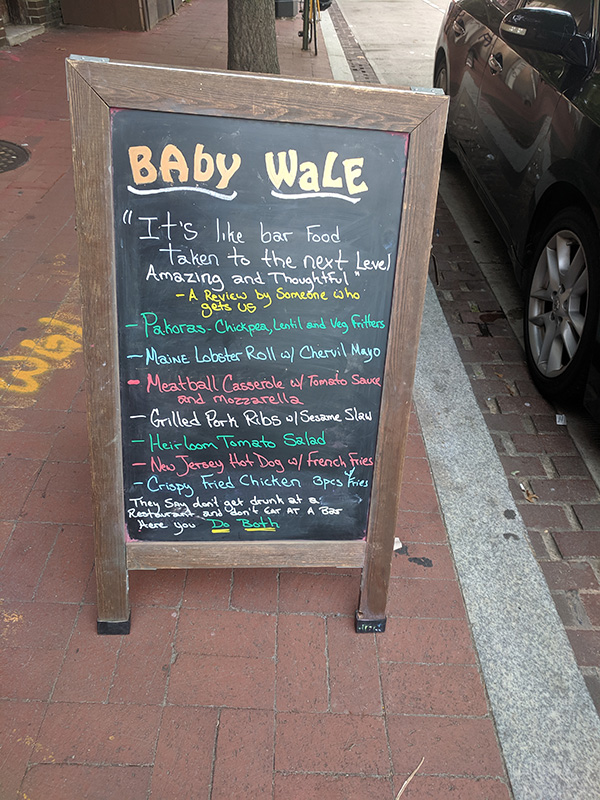 BAby WaLE
"It's like bar Food
taken to the next Level
Amazing and Thoughtful"
- A Review by Someone who
gets US
- Pakoras - Chickpea, Lentil and Veg Fritters
- Maine Lobster Roll w/ Chervil Mayo
- Meatball Casserole w/ Tomato Sauce
and Mozzarella
- Grilled Pork Ribs w/ Sesame Slaw
- Heirloom Tomato Salad
- New Jersey Hot Dog w/ French Fries
- Crispy Fried Chicken 3pcs Y Fries
They Say don't get drunk at a
Restaurant and don't EAT AT A BAR
Here you Do Both